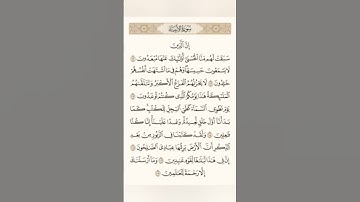 سورة الأنبياء
إن الذين
سبقت لهم منا الحسنى أولئك عنها مبعدون
لا يسمعون حسيسها وهم في ما اشتهت أنفسهم
خالدون لا يحزنهم الفزع الأكبر وتتلقاهم
الملائكة هذا يومكم الذي كنتم توعدون
يوم نطوي السماء كطي السجل للكتب كما
بدأنا أول خلق نعيده وعدا علينا إنا كنا
فاعلين ولقد كتبنا في الزبور من بعد
الذكر أن الأرض يرثها عبادي الصالحون
إن في هذا لبلاغا لقوم عابدين وما أرسلناك
إلا رحمة للعالمين